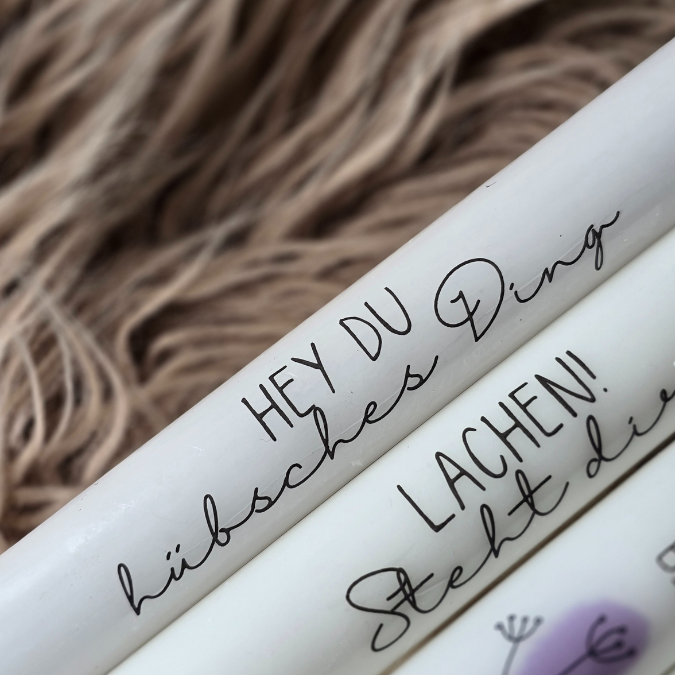 HEY DU
hübsches Ding
LACHEN!
Steht dir